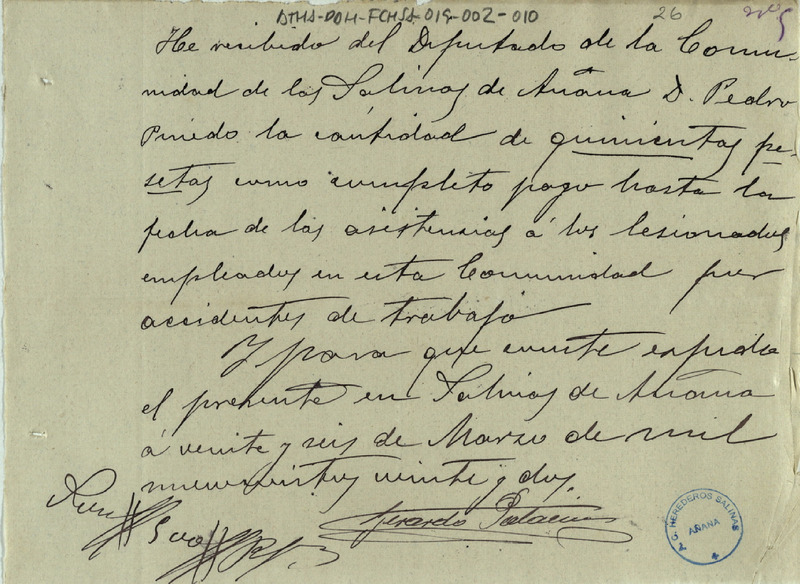 ATHA-DAH-FCHSA-019-002-010
26
nº 5
He recibido del Diputado de la Comu-
nidad de las Salinas de Añana D. Pedro
Pinedo la cantidad de quinientas pe-
setas como completo pago hasta la
fecha de las asistencias á los lesionados
empleados en esta Comunidad por
accidentes de trabajo
Y para que conste expido
el presente en Salinas de Añana
á veinte y seis de Marzo de mil
novecientos veinte y dos.
Son // 500 // Pts
Gerardo Palacios
A. G. HEREDEROS SALINAS
AÑANA